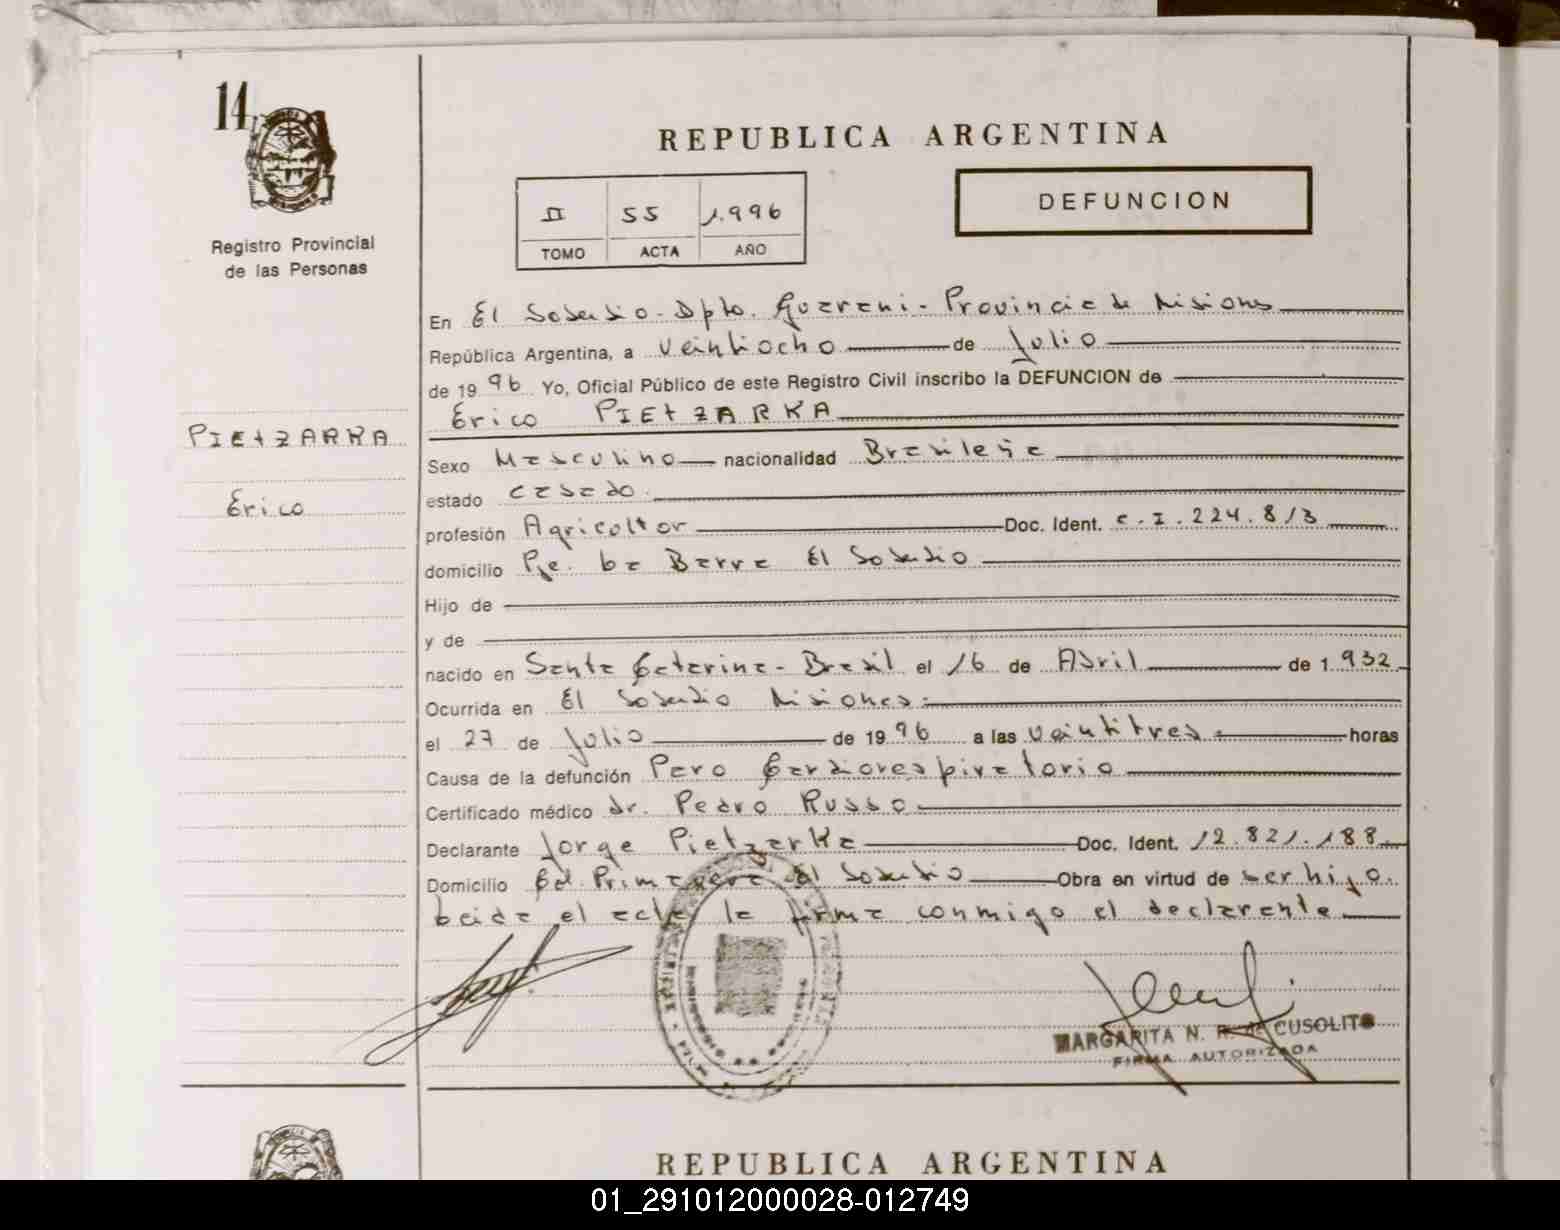 14
REPUBLICA ARGENTINA
DEFUNCION
II 55 1.996
TOMO ACTA AÑO
Registro Provincial
de las Personas
En El Soberbio - Dpto. Guarani - Provincia de Misiones
República Argentina, a Veintiocho de Julio
de 1996 Yo, Oficial Público de este Registro Civil inscribo la DEFUNCION de
Erico PIETZARKA
PIETZARKA
Erico
Sexo Masculino nacionalidad Brasileña
estado casado.
profesión Agricultor Doc. Ident. C.I. 224.813
domicilio Pje. La Barra El Soberbio
Hijo de
y de
nacido en Santa Catarina - Brasil el 16 de Abril de 1.932
Ocurrida en El Soberbio Misiones.
el 27 de Julio de 1996 a las veintitres horas
Causa de la defunción Paro Cardiorespiratorio
Certificado médico dr. Pedro Russo
Declarante Jorge Pietzarka Doc. Ident. 12.821.188
Domicilio Col. Primavera El Soberbio Obra en virtud de ser hijo.
Leida el acta, la firma conmigo el declarante
MARGARITA N. R. de CUSOLITO
FIRMA AUTORIZADA
REPUBLICA ARGENTINA
01_291012000028-012749